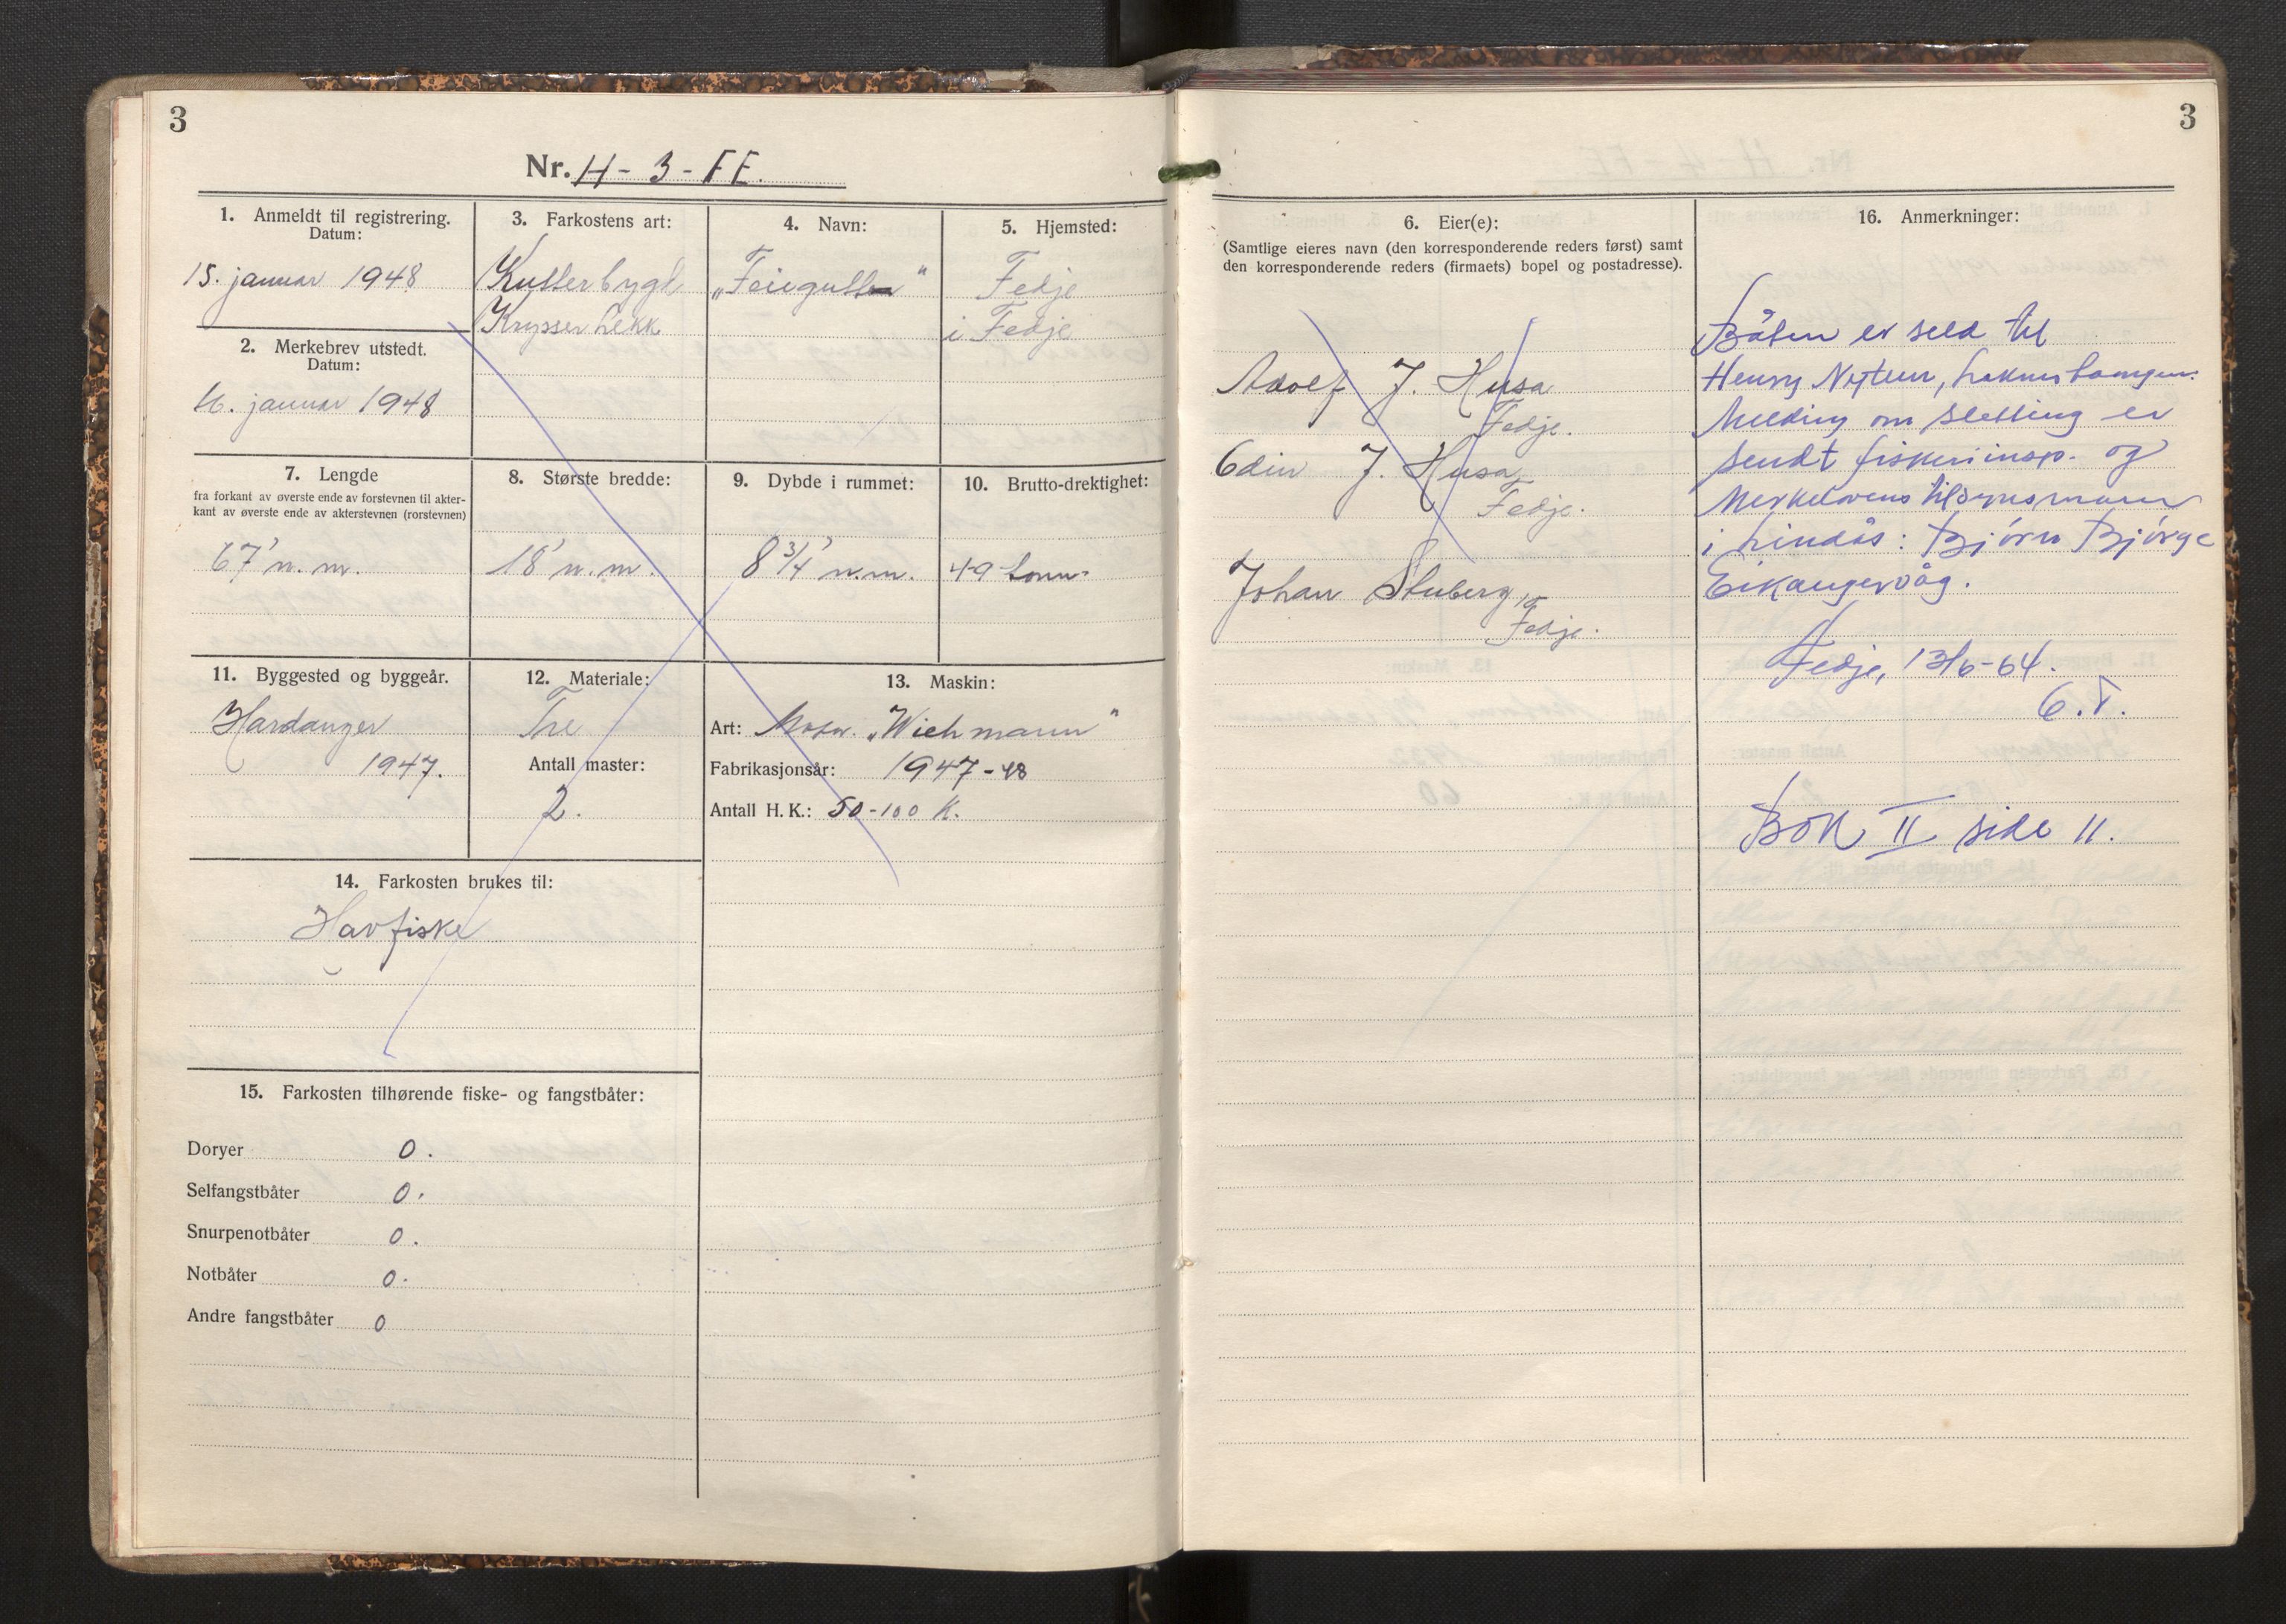 3
Nr. H - 3 - FE.
1. Anmeldt til registrering.
Datum:
15. januar 1948
2. Merkebrev utstedt.
Datum:
16. januar 1948
3. Farkostens art:
Kutterbygt
Krysser hekk
4. Navn:
"Feiegutten"
5. Hjemsted:
Fedje
i Fedje
7. Lengde
fra forkant av øverste ende av forstevnen til akter-
kant av øverste ende av akterstevnen (rorstevnen)
67' n.m.
8. Største bredde:
18' n.m.
9. Dybde i rummet:
8 3/4' n.m.
10. Brutto-drektighet:
49 tonn.
11. Byggested og byggeår.
Hardanger
1947.
12. Materiale:
Tre
Antall master:
2.
13. Maskin:
Art: Motor. "Wichmann"
Fabrikasjonsår: 1947-48
Antall H. K.: 50-100 K.
14. Farkosten brukes til:
Havfiske
15. Farkosten tilhørende fiske- og fangstbåter:
Doryer 0.
Selfangstbåter 0.
Snurpenotbåter 0.
Notbåter 0.
Andre fangstbåter 0
3
6. Eier(e):
(Samtlige eieres navn (den korresponderende reders først) samt
den korresponderende reders (firmaets) bopel og postadresse).
Adolf J. Husa
Fedje.
Edin J. Husa
Fedje.
Johan Stuberg
Fedje.
16. Anmerkninger:
Båten er seld til
Henry
Melding om sletting er
sendt fiskeriinsp. og
Merkelovens tilsynsmann
i Lindås: Bjørn Bjørge
Eikangervåg.
Fedje, 13/6-64.
E.T.
Bok II side 11.